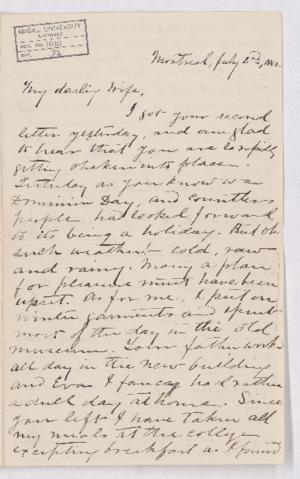 McGILL UNIVERSITY
ARCHIVES
ACC. NO. 1010
REF. 72
Montreal, July 2nd, 1882
My darling Wife,
I got your second
letter yesterday, and am glad
to hear that you are
getting shaken into place.
Yesterday as you know was
Dominion Day, and countless
people had looked forward
to its being a holiday. But oh
such weather! - cold, raw
and rainy. Many a plan
for pleasure must have been
upset. As for me, I put on
winter garments and spent
most of the day in the old
museum. Your father worked
all day in the new building
and Eva I fancy had rather
a dull day at home. Since
you left I have taken all
my meals at the college
excepting breakfast as I found